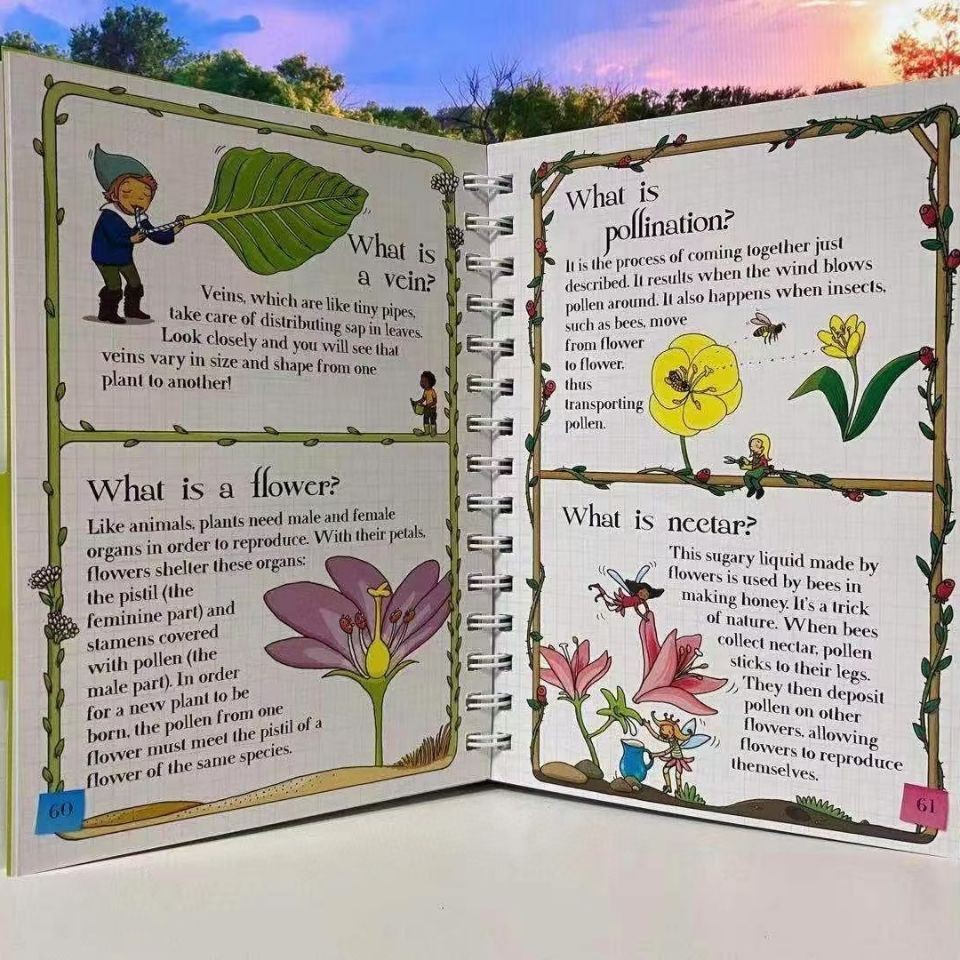 What is
a vein?
Veins, which are like tiny pipes,
take care of distributing sap in leaves.
Look closely and you will see that
veins vary in size and shape from one
plant to another!
What is a flower?
Like animals, plants need male and female
organs in order to reproduce. With their petals,
flowers shelter these organs:
the pistil (the
feminine part) and
stamens covered
with pollen (the
male part). In order
for a new plant to be
born, the pollen from one
flower must meet the pistil of a
flower of the same species.
60
What is
pollination?
It is the process of coming together just
described. It results when the wind blows
pollen around. It also happens when insects,
such as bees, move
from flower
to flower,
thus
transporting
pollen.
What is nectar?
This sugary liquid made by
flowers is used by bees in
making honey. It's a trick
of nature. When bees
collect nectar, pollen
sticks to their legs.
They then deposit
pollen on other
flowers, allowing
flowers to reproduce
themselves.
61